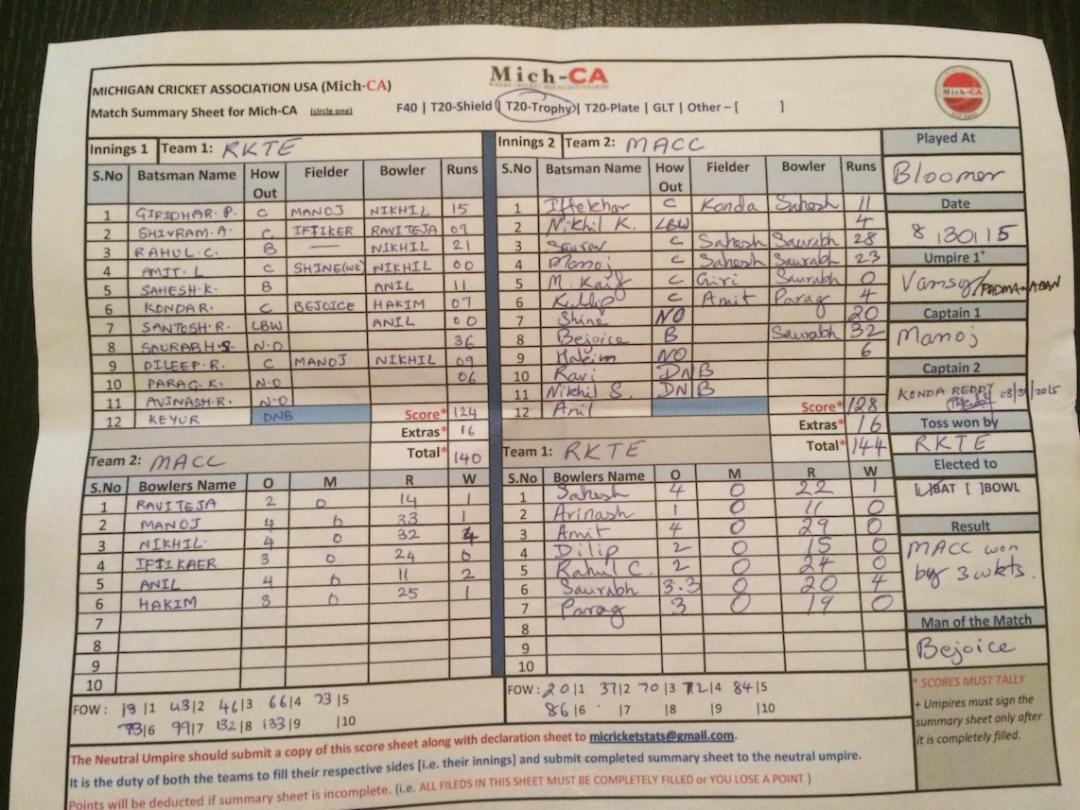 Mich-CA
MICHIGAN CRICKET ASSOCIATION USA (Mich-CA)
Match Summary Sheet for Mich-CA (circle one) F40 | T20-Shield | T20-Trophy | T20-Plate | GLT | Other – [ ]
Mich-CA
Innings 1 Team 1: RKTE
S.No Batsman Name How Out Fielder Bowler Runs
1 GIRIDHAR. P. C MANOJ NIKHIL 15
2 SHIVRAM. A. C IFTIKER RAVITEJA 09
3 RAHUL. C. B — NIKHIL 21
4 AMIT. L C SHINE(WK) NIKHIL 00
5 SAHESH. K. B ANIL 11
6 KONDAR. C BEJOICE HAKIM 07
7 SANTOSH. R. LBW ANIL 00
8 SAURABH. S. N.O 36
9 DILEEP. R. C MANOJ NIKHIL 09
10 PARAG. K. N.O 06
11 AVINASH. R. N.O
12 KEYUR DNB
Score* 124
Extras* 16
Total* 140
Team 2: MACC
S.No Bowlers Name O M R W
1 RAVITEJA 2 0 14 1
2 MANOJ 4 0 33 1
3 NIKHIL 4 0 32 4
4 IFTIKAER 3 0 24 0
5 ANIL 4 0 11 2
6 HAKIM 3 0 25 1
7
8
9
10
FOW: 19 |1 43|2 46|3 66|4 73|5
73|6 99|7 132|8 133|9 |10
Innings 2 Team 2: MACC
S.No Batsman Name How Out Fielder Bowler Runs
1 Iftekhar C Konda Sahesh 11
2 Nikhil K. LBW 4
3 Sourav C Sahesh Saurabh 28
4 Manoj C Sahesh Saurabh 23
5 M. Kaif C Giri Saurabh 0
6 Kuldip C Amit Parag 4
7 Shine NO 20
8 Bejoice B Saurabh 32
9 Hakeim NO 6
10 Ravi DNB
11 Nikhil S. DNB
12 Anil
Score* 128
Extras* 16
Total* 144
Team 1: RKTE
S.No Bowlers Name O M R W
1 Sahesh 4 0 22 1
2 Avinash 1 0 11 0
3 Amit 4 0 29 0
4 Dilip 2 0 15 0
5 Rahul C. 2 0 24 0
6 Saurabh 3.3 0 20 4
7 Parag 3 0 19 0
8
9
10
FOW: 20|1 37|2 70|3 72|4 84|5
86|6 |7 |8 |9 |10
Played At
Bloomer
Date
8/30/15
Umpire 1+
Vamsy/PADMANABAN
Captain 1
Manoj
Captain 2
KONDA REDDY
08/31/2015
Toss won by
RKTE
Elected to
[✓]BAT [ ]BOWL
Result
MACC won
by 3 wkts.
Man of the Match
Bejoice
* SCORES MUST TALLY
+ Umpires must sign the
summary sheet only after
it is completely filled.
The Neutral Umpire should submit a copy of this score sheet along with declaration sheet to micricketstats@gmail.com.
It is the duty of both the teams to fill their respective sides [i.e. their innings] and submit completed summary sheet to the neutral umpire.
Points will be deducted if summary sheet is incomplete. (i.e. ALL FILEDS IN THIS SHEET MUST BE COMPLETELY FILLED or YOU LOSE A POINT )